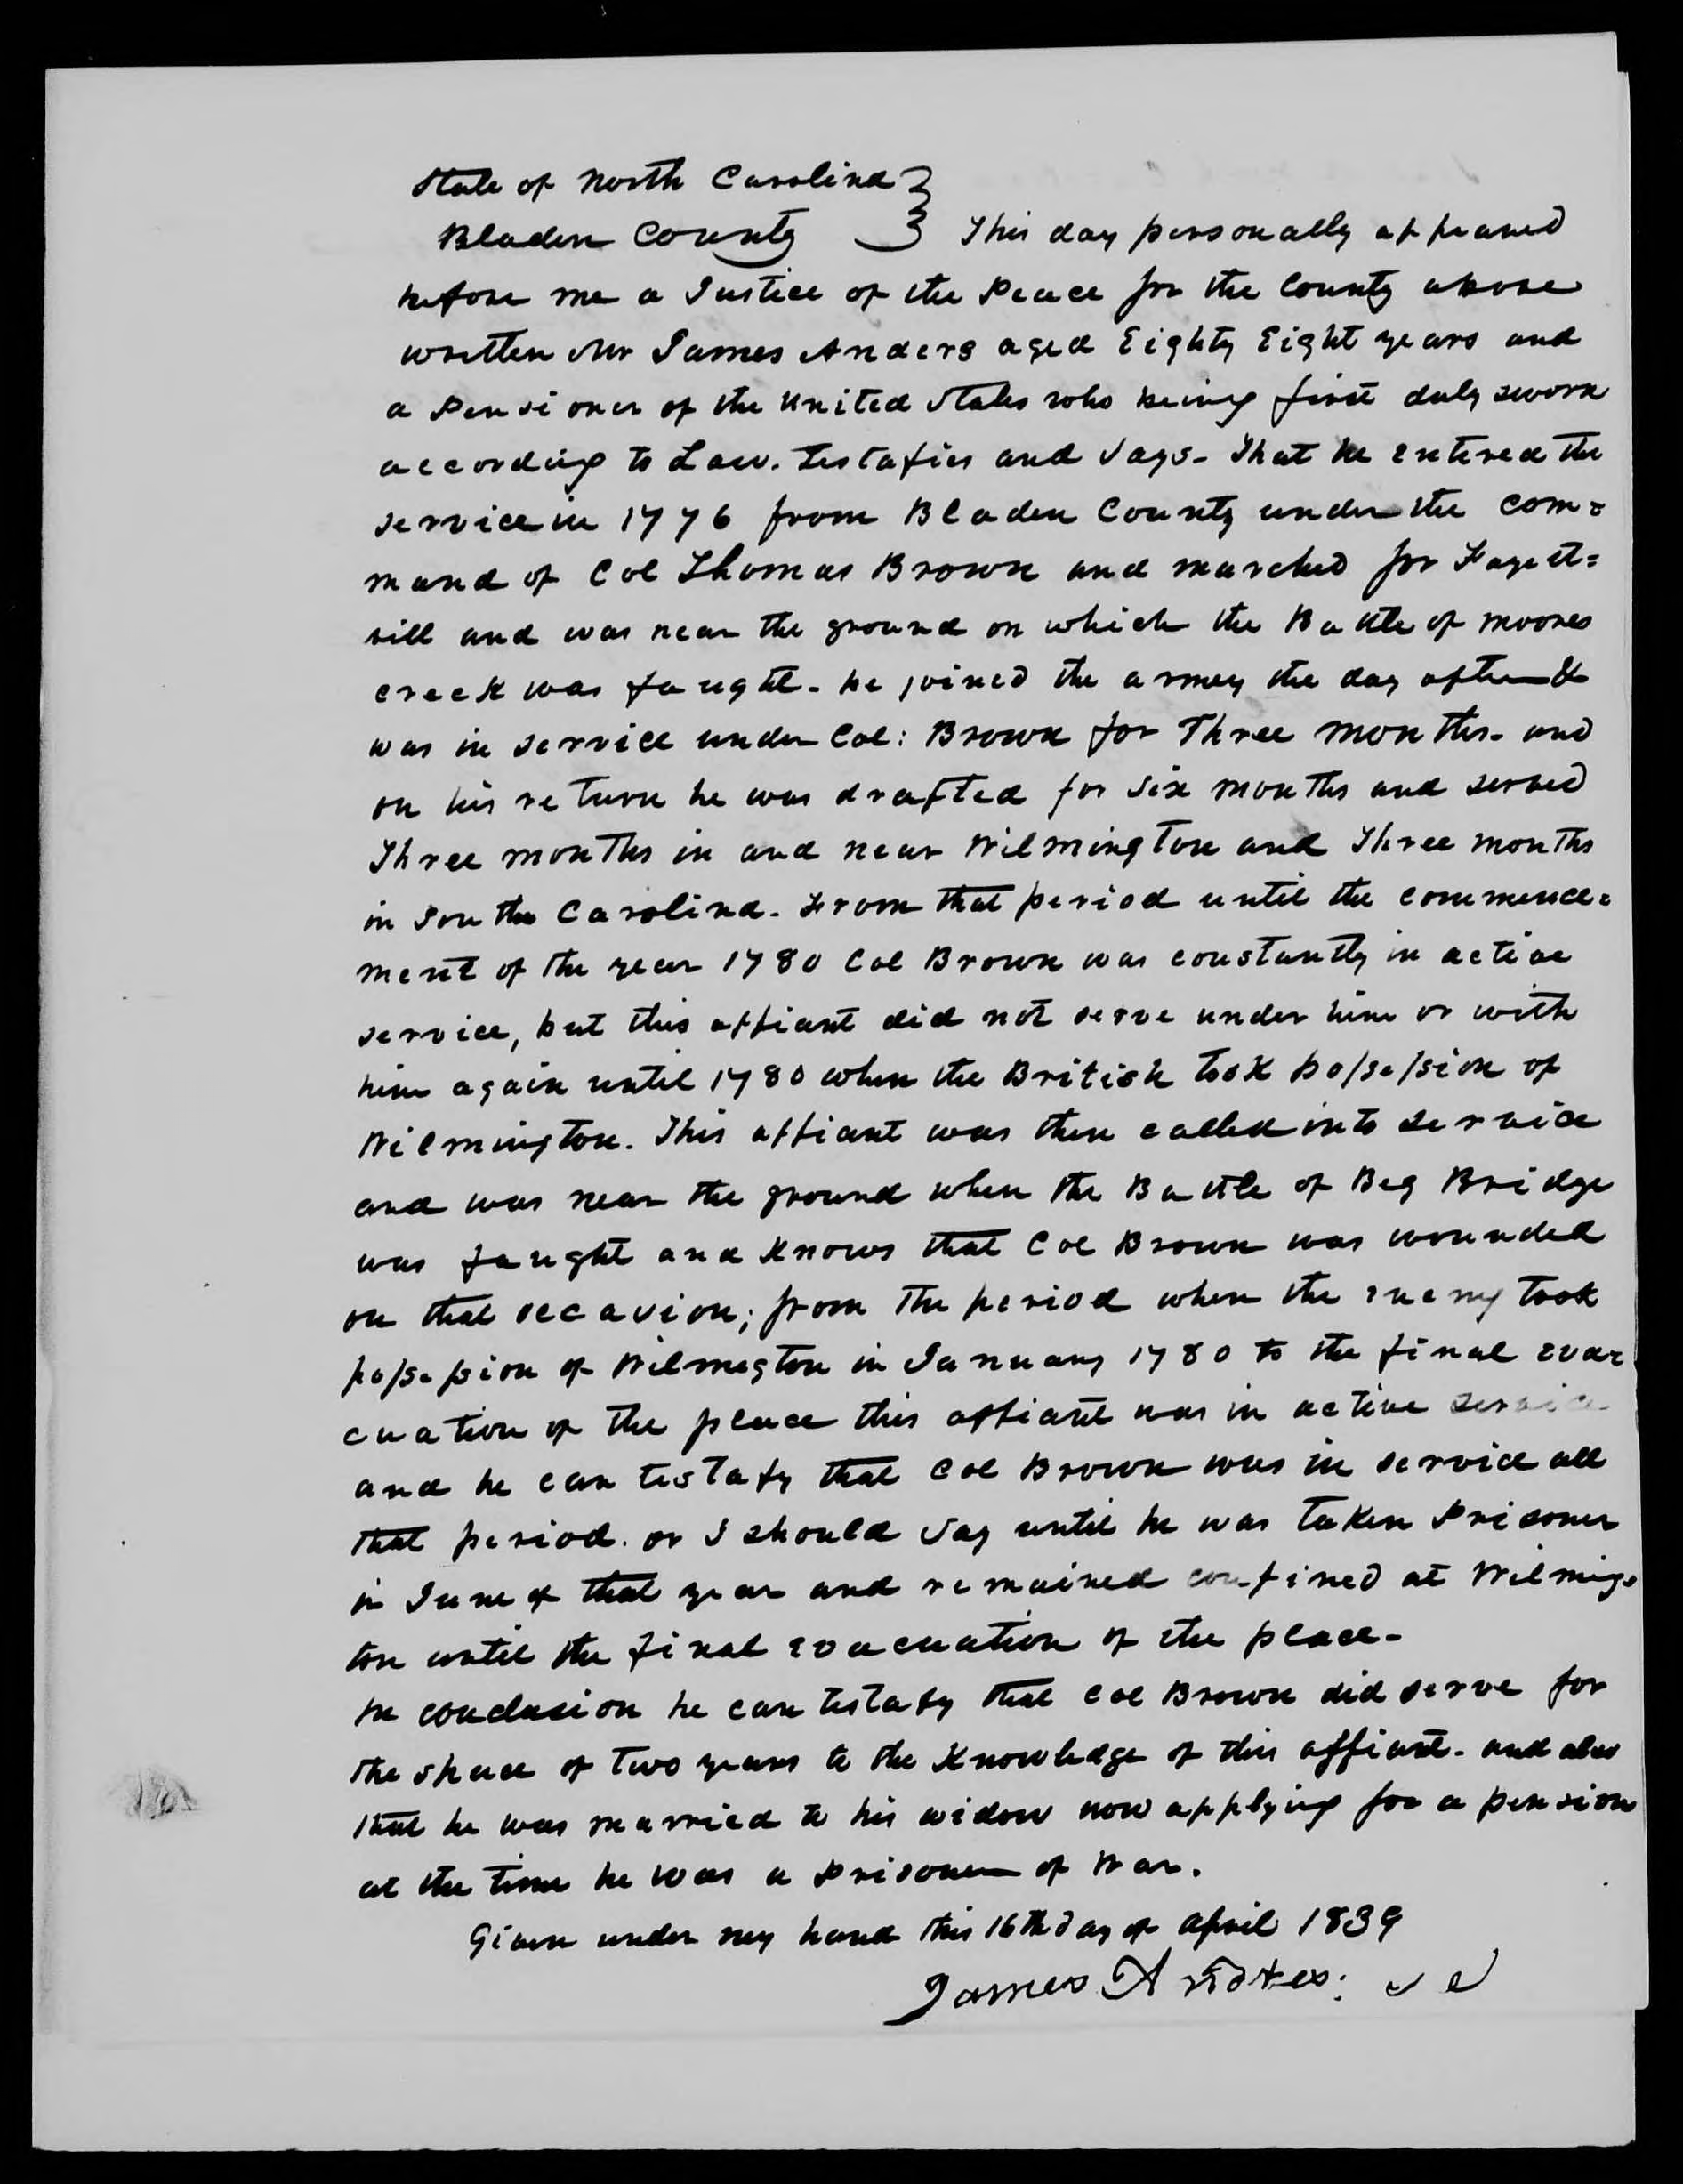 State of North Carolina }
Bladen County } This day personally appeared
before me a Justice of the Peace for the County above
written Mr James Anders aged Eighty Eight years and
a Pensioner of the United States who being first duly sworn
according to Law. testafies and Says - That he entered the
service in 1776 from Bladen County under the com=
mand of Col Thomas Brown and marched for Fayett=
vill and was near the ground on which the Battle of Moores
creek was faught - he joined the army the day after &
was in service under Col: Brown for Three months - and
on his return he was drafted for Six months and served
Three months in and near Wilmington and Three months
in South Carolina - From that period until the commence=
ment of the year 1780 Col Brown was constantly in active
service, but this affiant did not serve under him or with
him again until 1780 when the British took possession of
Wilmington. This affiant was then called into service
and was near the ground when the Battle of Beg Bridge
was faught and Knows that Col Brown was wounded
on that occasion; from the period when the enemy took
possession of Wilmegton in January 1780 to the final evac
cuation of the place this affiant was in active service
and he can testafy that Col Brown was in service all
that period. or I should Say until he was taken Prisoner
in June of that year and remained confined at Wilming=
ton until the final evacuation of the place -
In conclusion he can testafy that Col Brown did serve for
the space of two years to the Knowledge of this affiant - and also
that he was married to his widow now applying for a pension
at the time he was a Prisoner of War.
Given under my hand this 16th day of April 1839
James